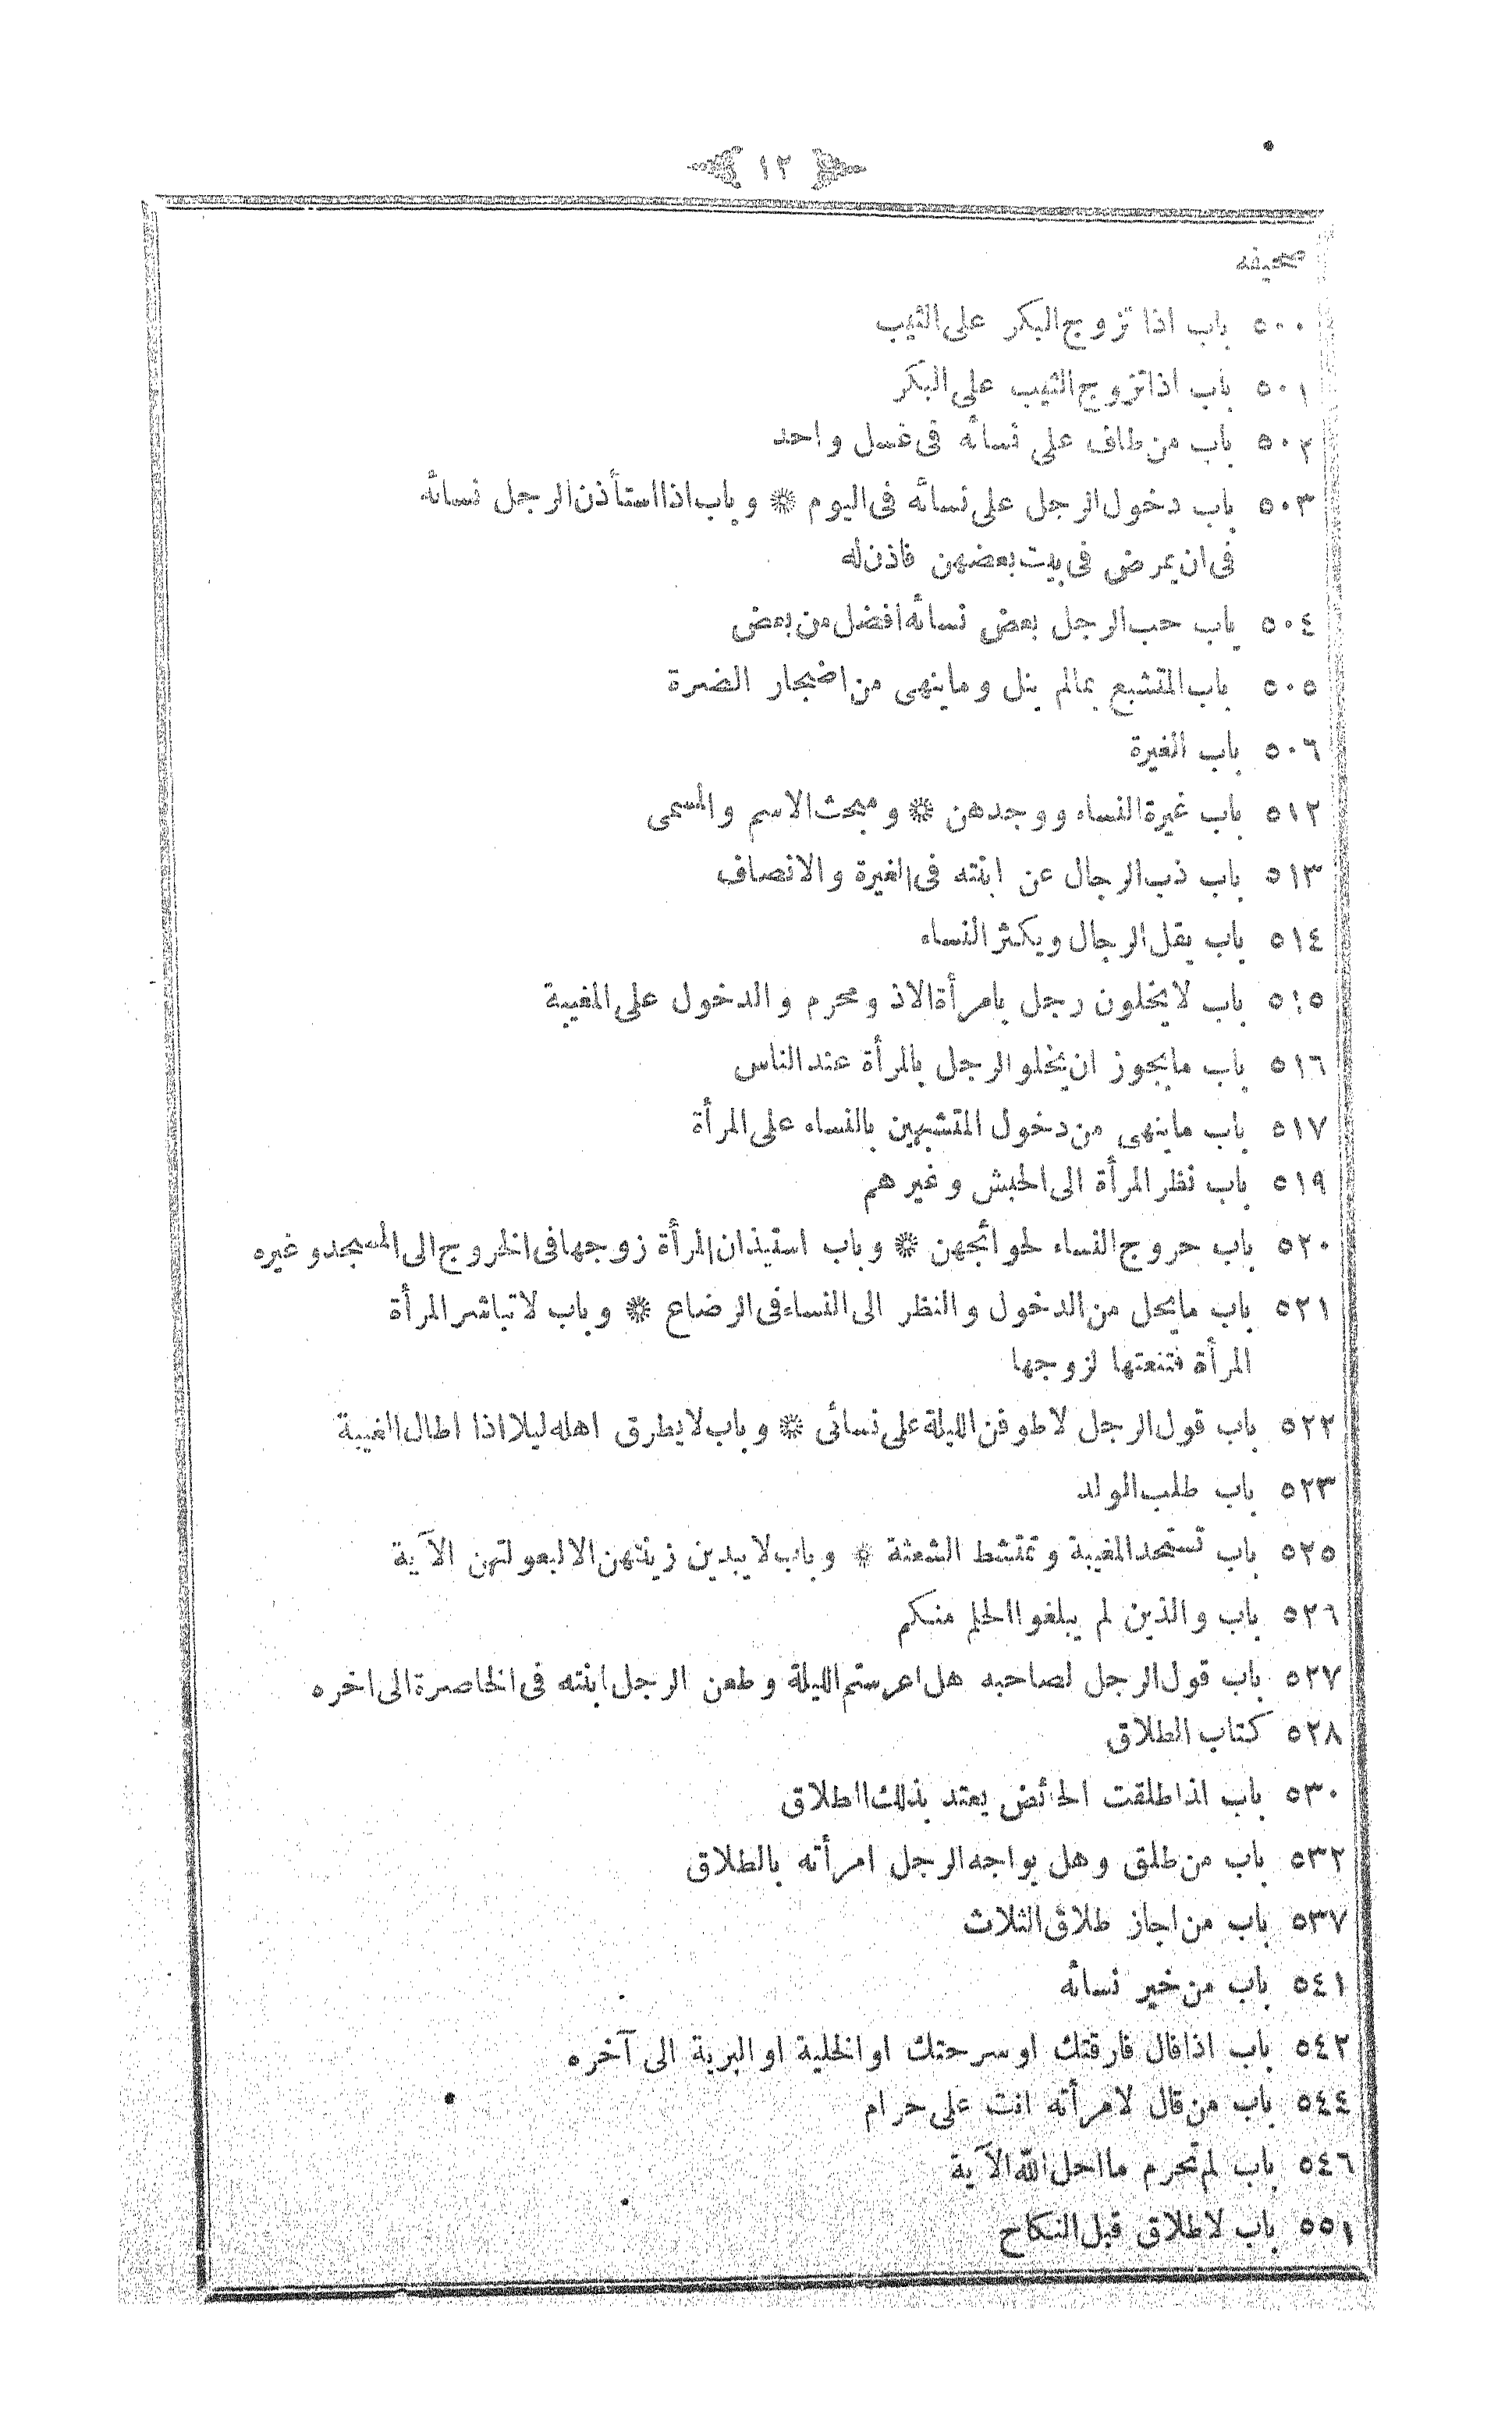 ١٢
صحيفه
٥٠٠ باب اذا تزوج البكر على الثيب
٥٠١ باب اذا تزوج الثيب على البكر
٥٠٢ باب من طاف على نسائه فى غسل واحد
٥٠٣ باب دخول الرجل على نسائه فى اليوم * وباب اذا استأذن الرجل نسائه
فى ان يمرض فى بيت بعضهن فاذن له
٥٠٤ باب حب الرجل بعض نسائه افضل من بعض
٥٠٥ باب المتشبع بمالم ينل وماينهى من اضجار الضرة
٥٠٦ باب الغيرة
٥١٢ باب غيرة النساء ووجدهن * ومبحث الاسم والمسمى
٥١٣ باب ذب الرجال عن ابنته فى الغيرة والانصاف
٥١٤ باب يقل الرجال ويكثر النساء
٥١٥ باب لايخلون رجل بامرأة الاذو محرم والدخول على المغيبة
٥١٦ باب مايجوز ان يخلو الرجل بالمرأة عند الناس
٥١٧ باب ماينهى من دخول المتشبهين بالنساء على المرأة
٥١٩ باب نظر المرأة الى الحبش وغيرهم
٥٢٠ باب حروج النساء لحوائجهن * وباب استيذان المرأة زوجها فى الخروج الى المسجد وغيره
٥٢١ باب مايحل من الدخول والنظر الى النساء فى الرضاع * وباب لاتباشر المرأة
المرأة فتنعتها لزوجها
٥٢٢ باب قول الرجل لاطوفن الليلة على نسائى * وباب لايطرق اهله ليلا اذا اطال الغيبة
٥٢٣ باب طلب الولد
٥٢٥ باب تستحد المغيبة وتمتشط الشعثة * وباب لايبدين زينتهن الا لبعولتهن الآية
٥٢٦ باب والذين لم يبلغوا الحلم منكم
٥٢٧ باب قول الرجل لصاحبه هل اعرستم الليلة وطعن الرجل ابنته فى الخاصرة الى اخره
٥٢٨ كتاب الطلاق
٥٣٠ باب اذا طلقت الحائض يعتد بذلك الطلاق
٥٣٢ باب من طلق وهل يواجه الرجل امرأته بالطلاق
٥٣٧ باب من اجاز طلاق الثلاث
٥٤١ باب من خير نسائه
٥٤٢ باب اذاقال فارقتك او سرحتك او الخلية او البرية الى آخره
٥٤٤ باب من قال لامرأته انت على حرام
٥٤٦ باب لم تحرم ما احل الله الآية
٥٥١ باب لاطلاق قبل النكاح